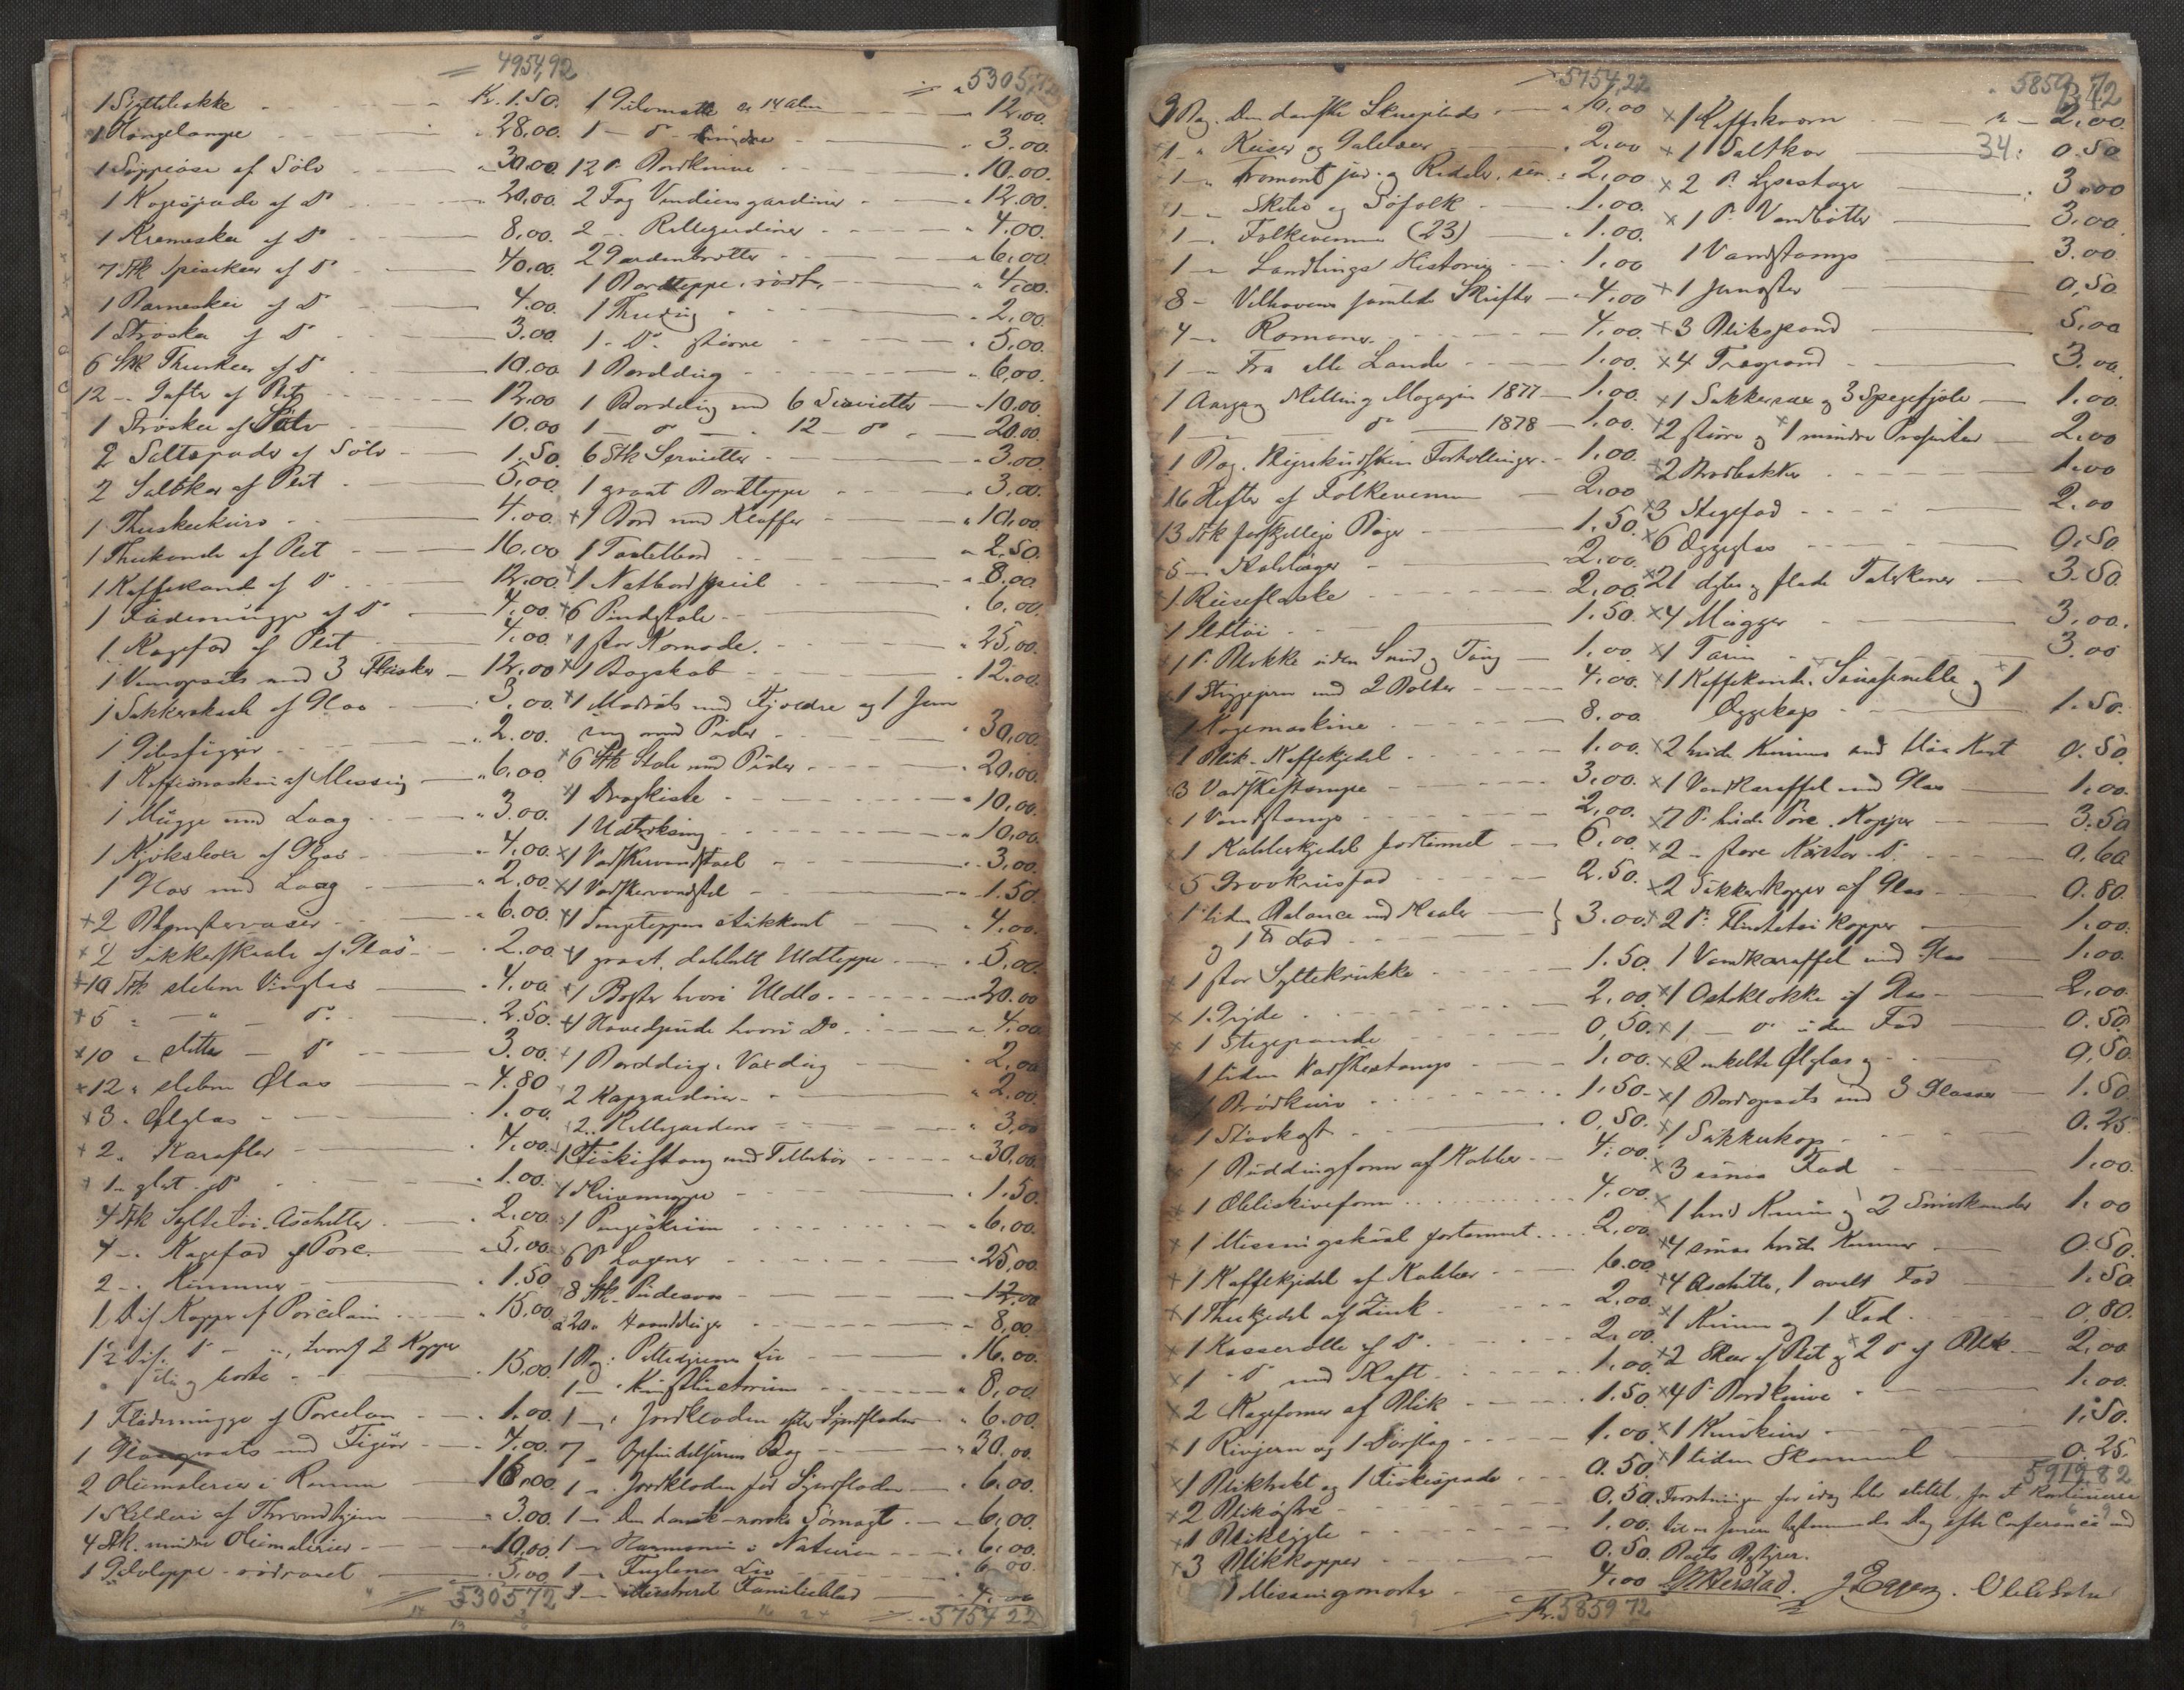 4954,92
1 Sigtebakke Kr. 1.50.
1 Hængelampe 28,00.
1 Suppeøse af Sølv 30,00
1 Kagespade af Do 20,00.
1 Kremeskee af Do 8,00.
7 Stk Spiseskeer af Do 40,00.
1 Barneskee af Do 4.00
1 Strøskee af Do 3.00.
6 Stk Theskeer af Do 10.00
12 - Gafler af Plet 12,00
1 Strøskee af Sølv 10.00
2 Saltspader af Sølv 1.50.
2 Saltkar af Plet 5,00
1 Theskeekurv 4.00
1 Thekande af Plet 16.00
1 Kaffekande af Do 12,00
1 Flødemugge af Do 4,00
1 Kagefad af Plet 4,00
1 Vinopsats med 3 Flasker 12,00
1 Sukkerskaal af Glas 3,00
1 Gibsfigur 2.00.
1 Kaffemaskin af Messing 6.00
1 Mugge med Laag 3.00.
1 af Glas 4,00
1 Glas med Laag 2,00
+2 Blomstervaser 6.00.
+2 Sukkerskaale af Glas 2.00
+10 Stk slebne Vinglas 4,00
+5 " - " - Do 2.50.
+10 " slette - Do 3.00.
+12 " slebne Glas 4.80
+3 - Ølglas 1.00
+2 " Karafler 4,00
+1 - glat Do 1.00
4 Stk Syltetøi-Aschetter 2,00
4 - Kagefad af Porc. 5,00
2 - Kummer 1.50
1 Dis. Kopper af Porcelain 15,00
1 1/2 Dis. Do - ", hvoraf 2 Kopper
15,00
1 Flødemugge af Porcelan 1,00
1 opsats med Figur 4,00
2 Oliemalerier i Ramme 16,00
1 Skilderi af Throndhjem 3.00
4 Stk. mindre Oliemalerier 10,00
1 Gulvteppe 5,00
530572
5305,72
1 Gulvmatte ca 14 alen 12,00.
1 - Do - mindre 3,00.
12 P. Bordknive 10.00.
2 Fag Vinduesgardiner 12.00
2 - Rullegardiner 4.00.
2 Gardenbretter 6,00.
1 Bordteppe, rødt 4,00.
1 Thedug 2,00
1 - Do. større 5,00.
1 Borddug 6,00.
1 Borddug med 6 Servietter 10,00.
1 - Do - 12 - Do 20.00
6 Stk Servietter 3,00.
1 graat Bordteppe 3,00.
+1 Bord med Klaffer 10,00
1 Toiletbord 2,50.
+1 Natbord speil 8,00
+6 Pindestole 6,00.
+1 stor Komode 25,00
+1 Bogskab 12.00.
+1 Madrats med Fjædre og 1 Jern
seng med Puder 30,00
+6 Stk Stole med Puder 20,00
+1 Dragkiste 10,00.
1 Udtrksseng 10,00.
+1 Vadskevandstoel 3,00.
+1 Vadskevandstel 1.50.
+1 Sengteppe stukkent 4,00
+1 graat, dobbelt Uldteppe 5,00
+1 Bolster hvori Uldlo 20.00
+1 Hovedpude hvori Do. 4,00
+1 Borddug, Voxdug 2,00
2 Kapgardiner 2.00.
2 Rullegardiner 3,00
1 Fiskestang med Tilbehør 30,00
1 1.50.
+1 Pengeskrin 6,00
6 P. Lagener 25,00
8 Stk. Pudevar 12,00
20 " Haanddug 8,00
1 Bog: Liv 16,00
1 - Kunsthistorien 8,00
1 - " Jordkloden efter Syndfloden 6.00
7 - Opfindelsernes Bog 30,00
1 - " Jordkloden før Syndfloden 6.00
1 - Den dansk-norske Sömagt 6,00
1 - Harmonien i Naturen 6,00
1 - Fuglenes Liv 6 00
1 - illustreret Familieblad 4,00
5754 22
5754,22
3 Bøg. Den danske Skueplads 10,00
1 - " Keiser og Galilæer 2,00
1 - " Fromont jun. og Risler sen. 2,00
1 - " Skitser og Söfolk 1.00.
1 - Folkevennen (23) 1.00.
1 - " Landtings Historie 1,00
8 - Velhavens samlede Skrifter 4,00
4 - Romaner 4,00.
1 - Fra alle Lande 1.00.
1 Aargang Milling Magazin 1877 1,00.
1 - Do - 1878 1,00.
1 Bog. Bjørnstjernes Fortællinger 1,00.
16 Hefter af Folkevennen 2,00
13 Stk forskjellige Bøger 1.50.
5 - Skolebøger 2,00.
1 Reiseflaske 2,00
1 1.50.
1 P. Blokke uden Snor og Toug 1,00.
1 Strygejern med 2 Bolter 4,00.
1 Kogemaskine 8.00
1 Blik-Kaffekjedel 1,00.
3 Vadskestampe 3,00.
1 Vandstamp 2,00.
1 Kobberkjedel fortinnet 6,00
5 Grovkrusfad 2.50.
1 liden Balance med Skaaler } 3.00
og 1 lb Lod
1 stor Syltekrukke 1.50
1 Gryde 2,00
1 Stegepande 0,50.
1 liden Vadskestamp 1,00
1 Brødkurv 1,50
1 Støvkost 0,50
1 Buddingform af Kobber 4,00
+1 Æbleskiveform 4,00
+1 Messingskaal fortinnet 2,00
+1 Kaffekjedel af Kobber 6.00
+1 Theekjedel af Zink 2,00
+1 Kasserolle af Do. 2,00
+1 - Do med Skaft 1,00
+2 Kageformer af Blik 1.50
+1 Rivjern og 1 Dørslag 1,00
+1 Bliktrakt og 1 Fiskespade 0.50
+2 Blikøstre 0.50
+1 Bliklygte 1,00
+3 Blikkopper 0.50
1 Messingmorter 4,00
Kr. 5859 72
5859,72
+1 Kaffekværn 2,00
+1 Saltkar 34: 0.50
+2 P. Lysestager 3,00
+1 P. Vandbøtter 3,00
1 Vandstamp 3.00
+1 0,50
+3 Blikspand 5,00
+4 Træspand 3,00
+1 Sukkersax og 3 Spegefjøle 1.00
+2 større og 1 mindre Presenter 2,00
+2 Brødbakker 1.00
+3 Stegefad 2.00
+6 Æggeglas 0,50
+21 dybe og flade Talerkener 3.50
+4 Mugger 3,00.
+1 Tarin 3.00
+1 Kaffekande, Sauseskaale og +1
Æggekop 1.50.
+2 hvide Kummer med blaa Kant 0.50
+1 Vandkaraffel med Glas 1,00.
+7 P. hvide Porc. Kopper 3.50
+2 - store Do. 0,60
+2 Sukkerkopper af Glas 0.80
+2 P. Kopper 1,00
1 Vandkaraffel med Glas 1,00
+1 Osteklokke af Glas 2,00
+1 - Do uden Fod 0.50
+2 enkelte Ølglas 0,50
+1 Bordopsats med 3 Glasser 1.50
+1 Sukkerkop 0.25
+3 smaa Fad 1,00
+1 hvid Kumme og 2 1,00
+4 smaa hvide Kummer 0.50
+4 Aschetter, 1 ovalt Fad 1.50
+1 Kumme og 1 Fad 0,80.
+2 Skeer af Plet og 2 Do af Blik 2,00
+4 P. Bordknive 1.00
+1 Knivkurv 1.50.
+1 liden Skammel 0.25
5919 82
Forretningen for idag blev sluttet, for at kontinuere
til en senere bestemmende Dag efter Conference med
Boets Bestyrer.